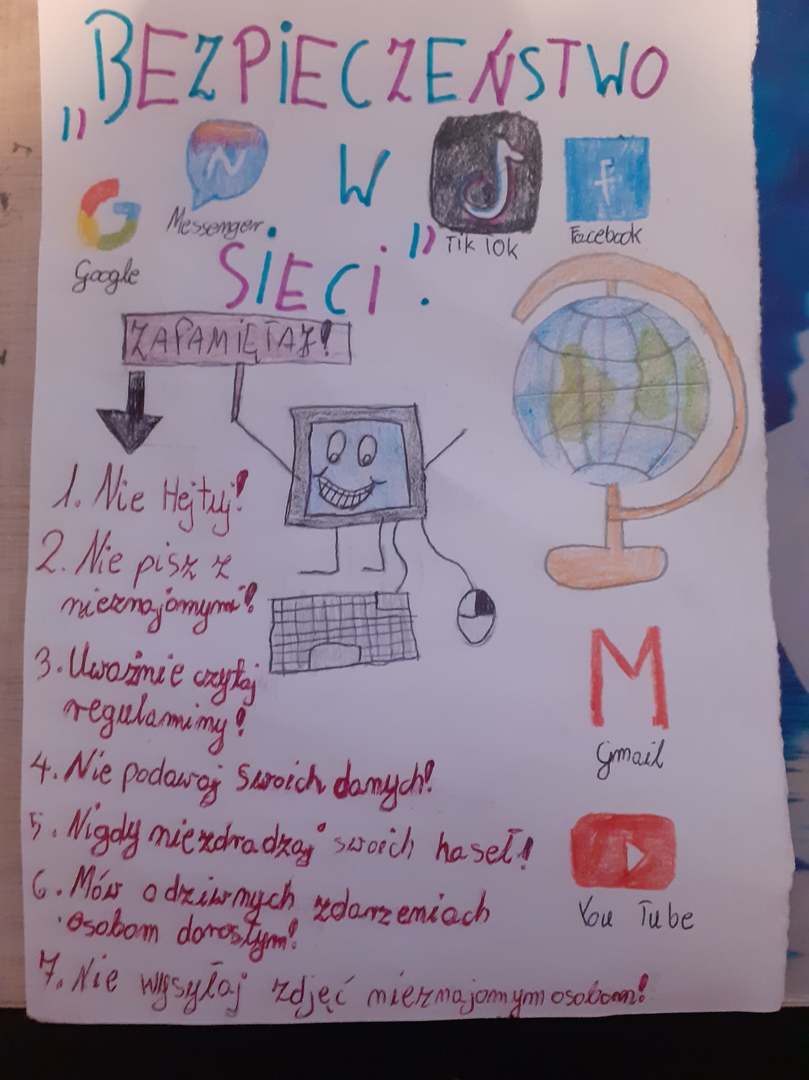 „BEZPIECZEŃSTWO
W
SIECI”.
Google
Messenger
Tik Tok
Facebook
ZAPAMIĘTAJ!
1. Nie Hejtuj!
2. Nie pisz z
nieznajomymi!
3. Uważnie czytaj
regulaminy!
4. Nie podawaj swoich danych!
5. Nigdy niezdradzaj swoich haseł!
6. Mów o dziwnych zdarzeniach
osobom dorosłym!
7. Nie wysyłaj zdjęć nieznajomym osobom!
Gmail
You Tube